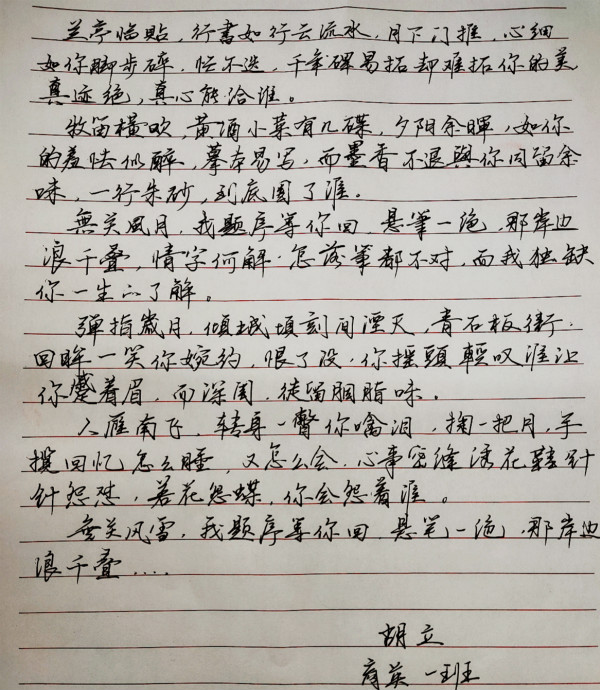 兰亭临贴，行書如行云流水，月下门推，心细
如你脚步碎，忙不迭，千年碑易拓却难拓你的美
真迹绝，真心能洽谁。
牧笛横吹，黄酒小菜有几碟，夕阳余暉，如你
的羞怯似醉，摹本易写，而墨香不退與你同留余
味，一行朱砂，到底圈了谁.
無关風月，我题序等你回，悬筆一绝，那岸边
浪千叠，情字何解.怎落筆都不对，而我独缺
你一生的了解。
弹指歲月，傾城頃刻间湮灭，青石板街.
回眸一笑你婉约，恨了没，你摇頭輕叹谁让
你蹙着眉，而深闺，徒留胭脂味。
人雁南飞，转身一瞥你噙泪，掬一把月，手
攬回忆怎么睡，又怎么会，心事密缝绣花鞋针
针怨怼，若花怨蝶，你会怨着谁。
無关风雪，我题序等你回，悬笔一绝，那岸边
浪千叠....
胡立
育英一班